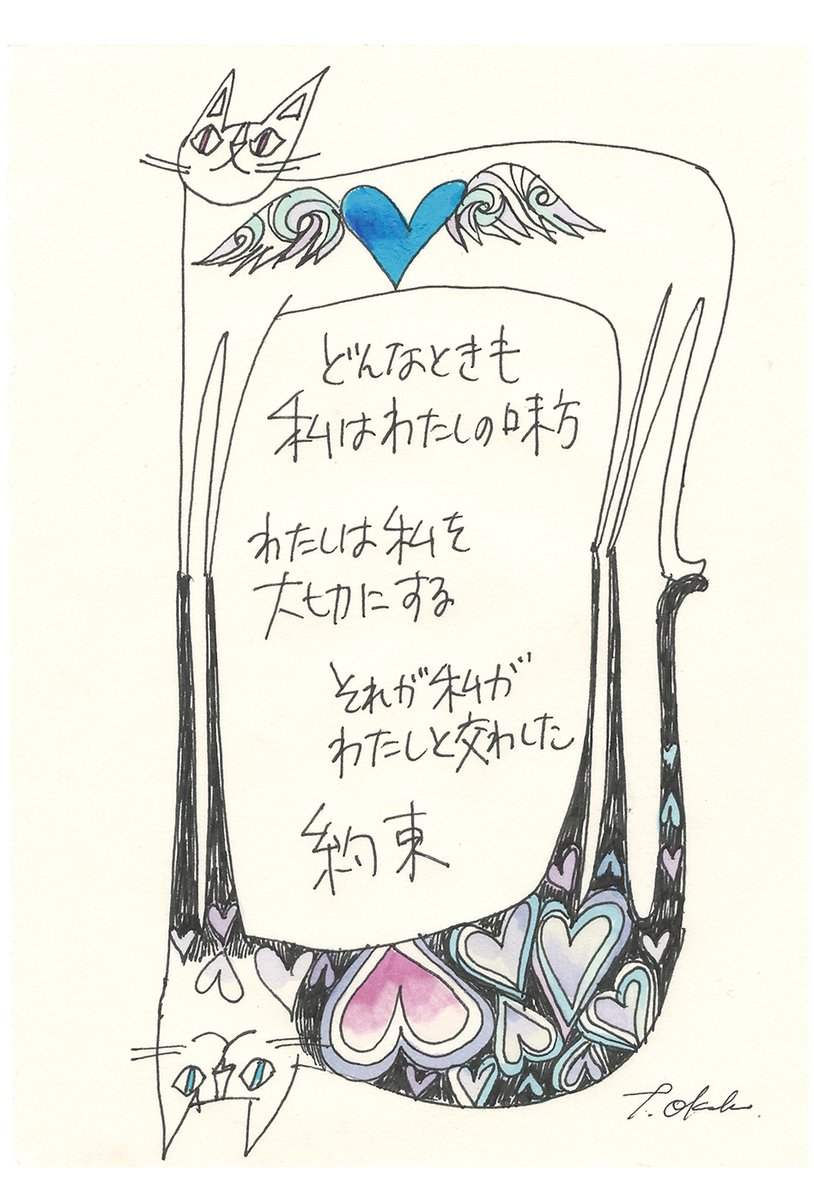 どんなときも
私はわたしの味方
わたしは私を
大切にする
それが私が
わたしと交わした
約束